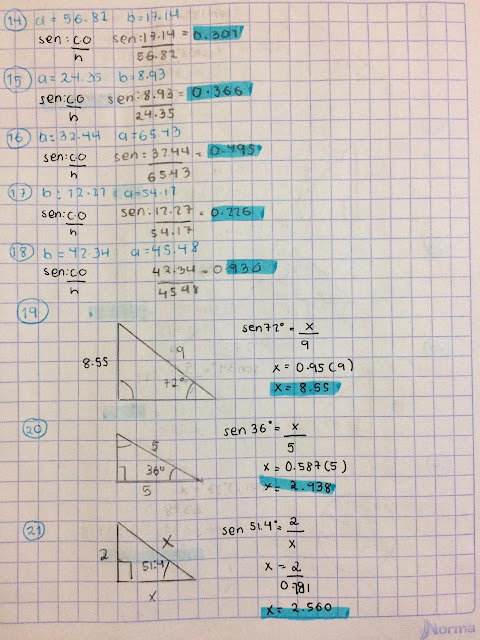 14 a = 56.82 b = 17.14
sen: CO/h sen: 17.14/56.82 = 0.301
15 a = 24.35 b = 8.93
sen: CO/h sen: 8.93/24.35 = 0.366
16 b = 32.44 a = 65.43
sen: CO/h sen: 32.44/6543 = 0.495
17 b: 12.27 a = 54.17
sen: CO/h sen: 12.27/54.17 = 0.226
18 b = 42.34 a = 45.48
sen: CO/h 42.34/4548 = 0.930
19
8.55 9 72°
sen 72° = x/9
x = 0.95 (9)
x = 8.55
20
5 36° 5
sen 36° = x/5
x = 0.587 (5)
x = 2.938
21
2 x 51.4 x
sen 51.4° = 2/x
x = 2/0.781
x = 2.560
Norma